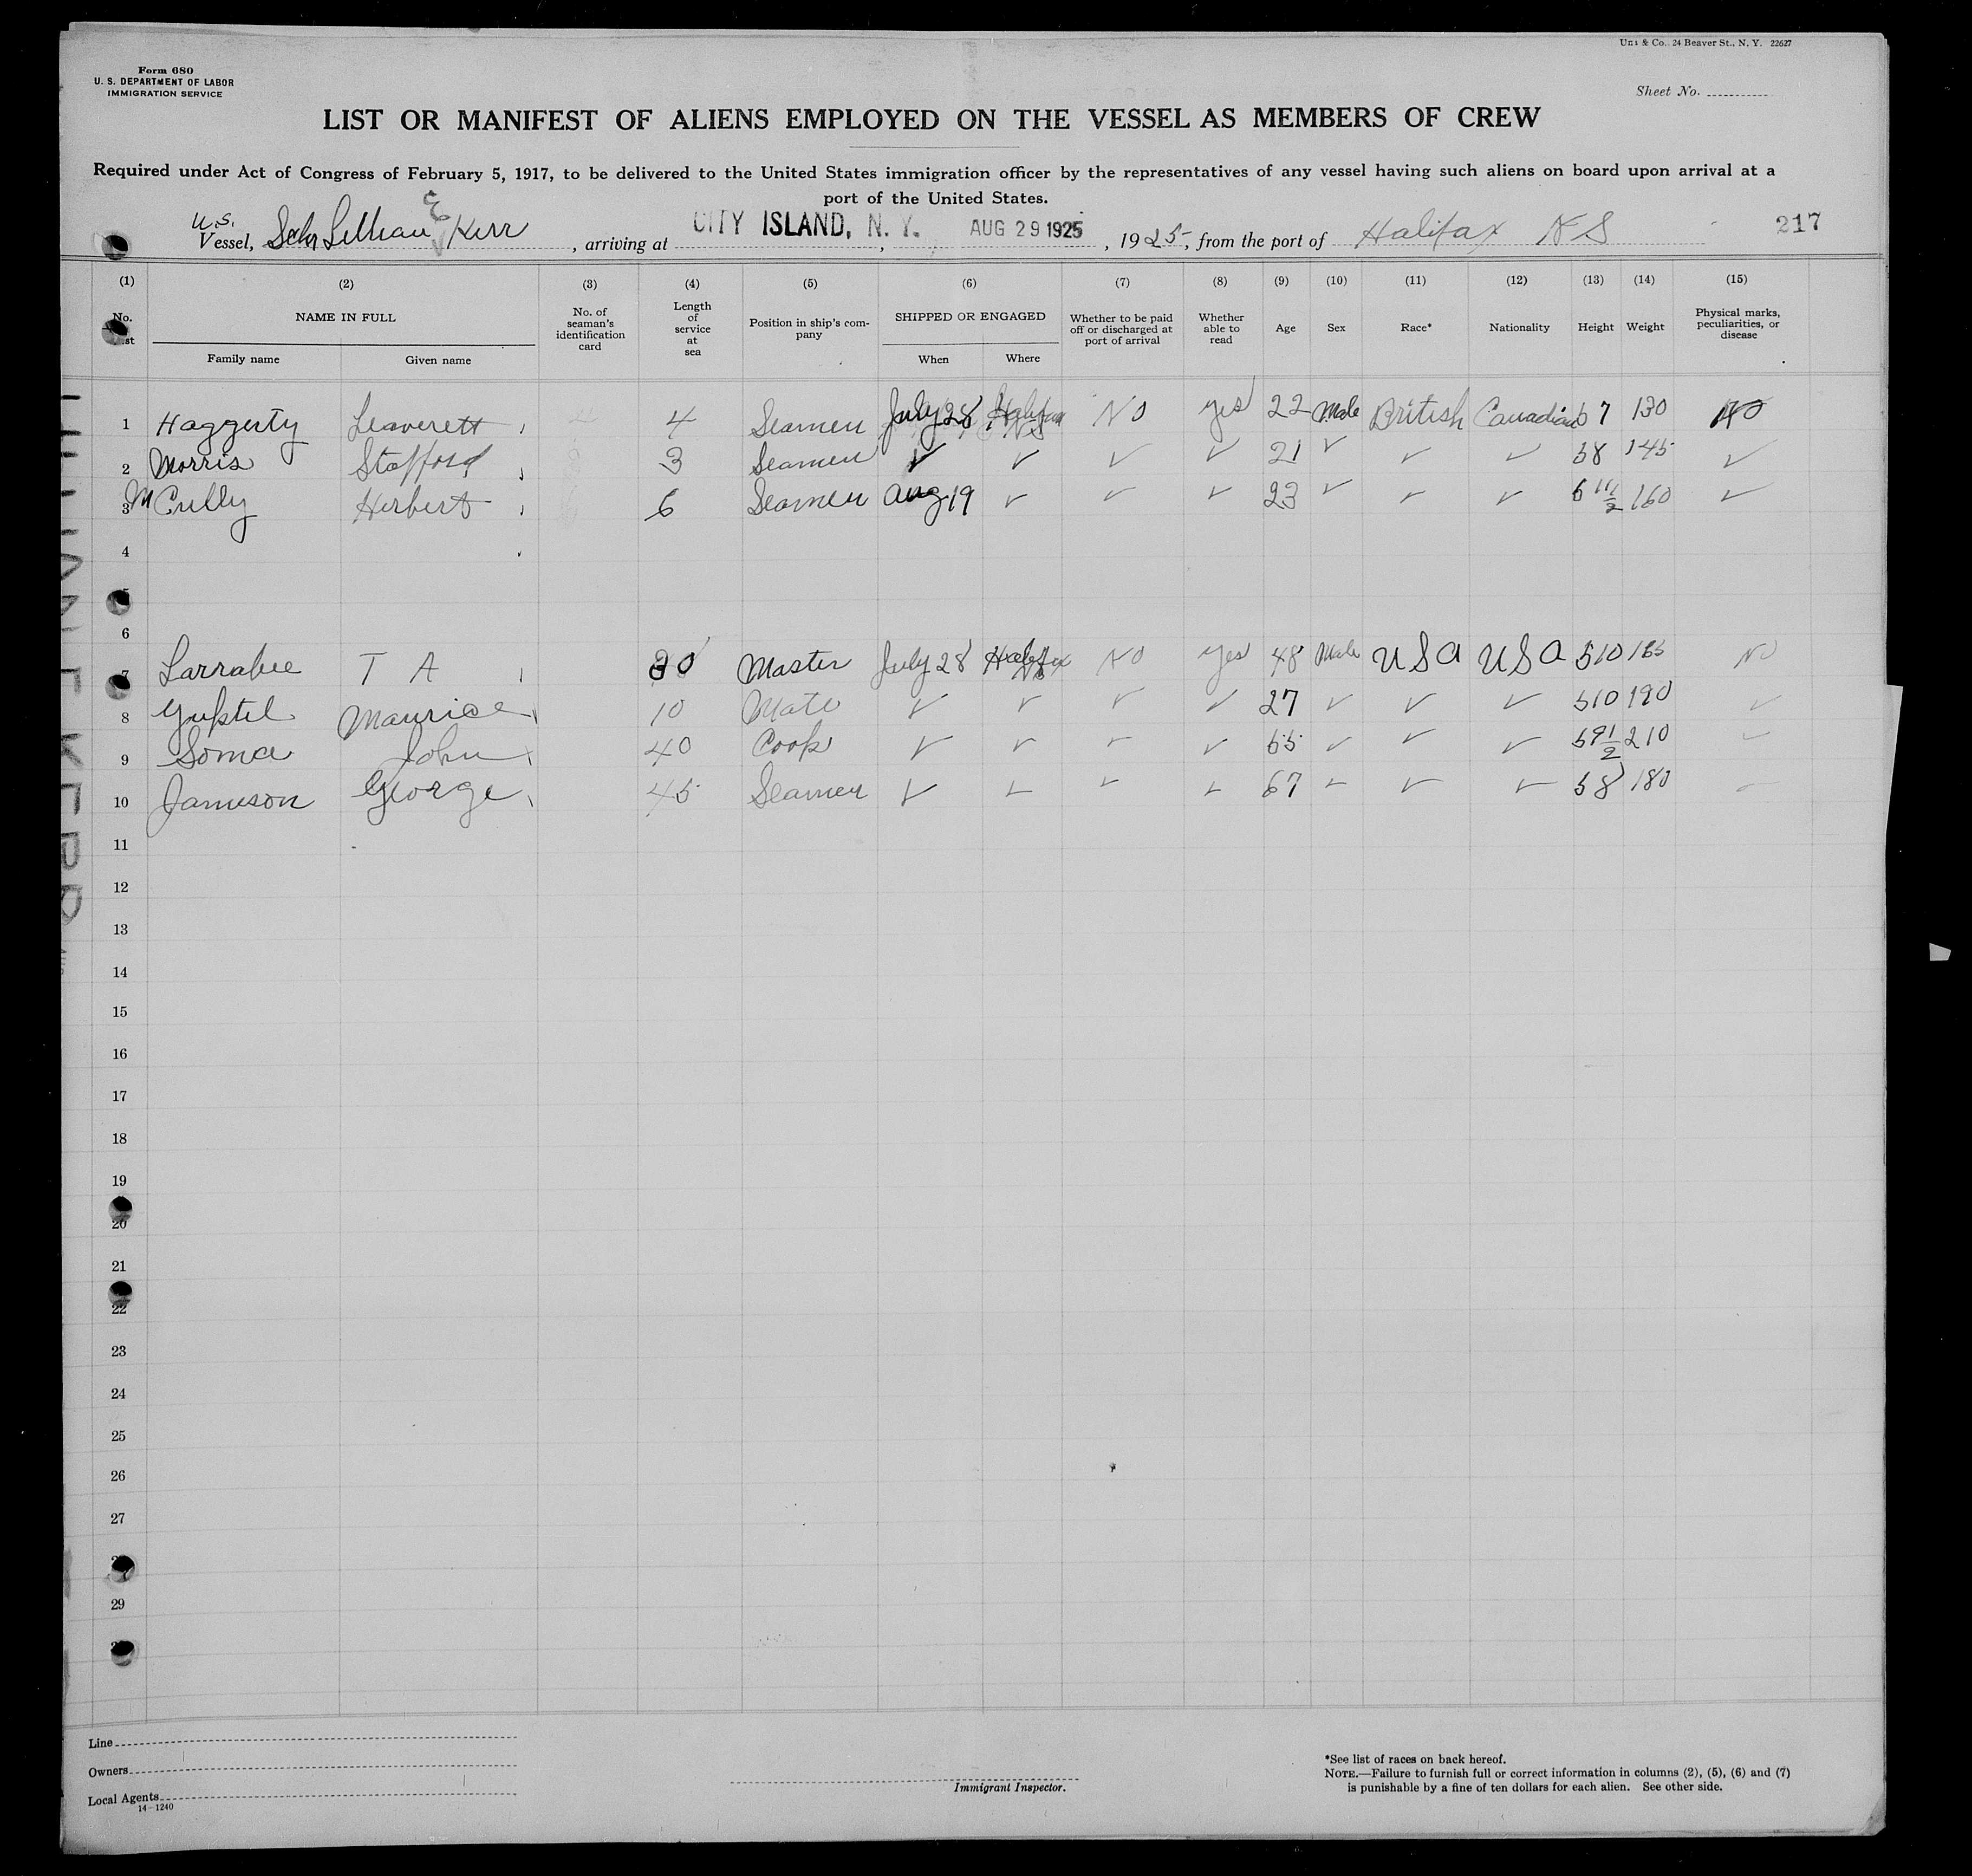 Uni & Co. 24 Beaver St., N. Y. 22627
Form 680
U. S. DEPARTMENT OF LABOR
IMMIGRATION SERVICE
Sheet No.
LIST OR MANIFEST OF ALIENS EMPLOYED ON THE VESSEL AS MEMBERS OF CREW
Required under Act of Congress of February 5, 1917, to be delivered to the United States immigration officer by the representatives of any vessel having such aliens on board upon arrival at a
port of the United States.
U.S. Vessel, Schr Lillian E Kerr, arriving at CITY ISLAND, N. Y., AUG 29 1925, 1925, from the port of Halifax NS 217
(1) (2) (3) (4) (5) (6) (7) (8) (9) (10) (11) (12) (13) (14) (15)
No. st NAME IN FULL Family name Given name No. of seaman's identification card Length of service at sea Position in ship's company SHIPPED OR ENGAGED When Where Whether to be paid off or discharged at port of arrival Whether able to read Age Sex Race* Nationality Height Weight Physical marks, peculiarities, or disease
1 Haggerty Leaverett 4 Seamen July 28 Halifax NS NO yes 22 Male British Canadian 5 7 130 NO
2 Morris Stafford 3 Seamen ✓ ✓ ✓ ✓ 21 ✓ ✓ ✓ 58 145 ✓
3 McCully Herbert 6 Seamen Aug 19 ✓ ✓ ✓ 23 ✓ ✓ ✓ 160 ✓
4
5
6
7 Larrabee T A Master July 28 Halifax NS NO yes 48 Male USA USA 510 NO
8 Maurice 10 Mate ✓ ✓ ✓ ✓ 27 ✓ ✓ ✓ 510 190 ✓
9 Soma John 40 Cook ✓ ✓ ✓ ✓ 55 ✓ ✓ ✓ 59 1/2 210 ✓
10 Jamieson George 45 Seamen ✓ ✓ ✓ ✓ 67 ✓ ✓ ✓ 58 180
11
12
13
14
15
16
17
18
19
20
21
22
23
24
25
26
27
29
LILLIAN E KERR
Line
Owners
Local Agents
14—1240
Immigrant Inspector.
*See list of races on back hereof.
NOTE.—Failure to furnish full or correct information in columns (2), (5), (6) and (7)
is punishable by a fine of ten dollars for each alien. See other side.